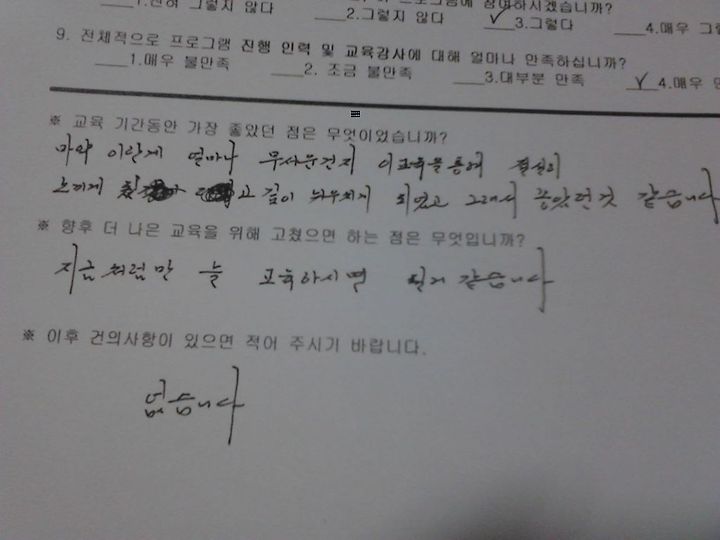 1.전혀 그렇지 않다 2.그렇지 않다 ✓3.그렇다 4.매우 그
9. 전체적으로 프로그램 진행 인력 및 교육강사에 대해 얼마나 만족하십니까?
1.매우 불만족 2. 조금 불만족 3.대부분 만족 ✓4.매우
※ 교육 기간동안 가장 좋았던 점은 무엇이었습니까?
마약 이란게 얼마나 무서운건지 이교육을통해 절실히
느끼게 고 깊이 뉘우치게 되었고 그래서 좋았던것 같습니다
※ 향후 더 나은 교육을 위해 고쳤으면 하는 점은 무엇입니까?
지금처럼만 늘 교육하시면 될거 같습니다
※ 이후 건의사항이 있으면 적어 주시기 바랍니다.
없습니다